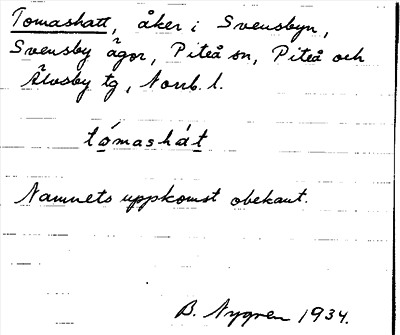 Tomashatt, åker i Svensbyn,
Svensby ägor, Piteå sn, Piteå och
Älvsby tg, Norrb. l.
tómashát
Namnets uppkomst obekant.
B. Nygren 1934.